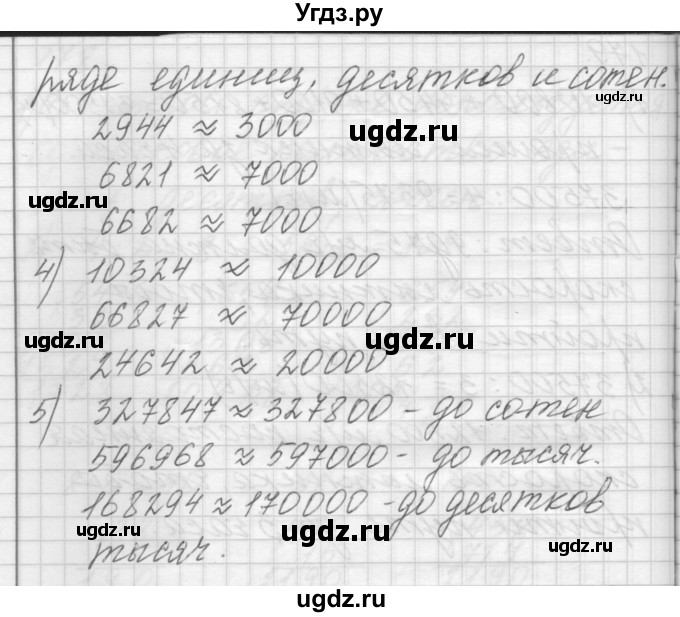 Угдз.ру
ряде единиц, десятков и сотен.
ugdz.ru
2944 ≈ 3000
ugdz.ru
6821 ≈ 7000
ugdz.ru
6682 ≈ 7000
4) 10324 ≈ 10000
66827 ≈ 70000
ugdz.ru
ugdz.ru
24642 ≈ 20000
5) 327847 ≈ 327800 - до сотен
596968 ≈ 597000 - до тысяч.
168294 ≈ 170000 - до десятков
тысяч.
ugdz.ru
ugdz.ru
ugdz.ru
ugdz.ru